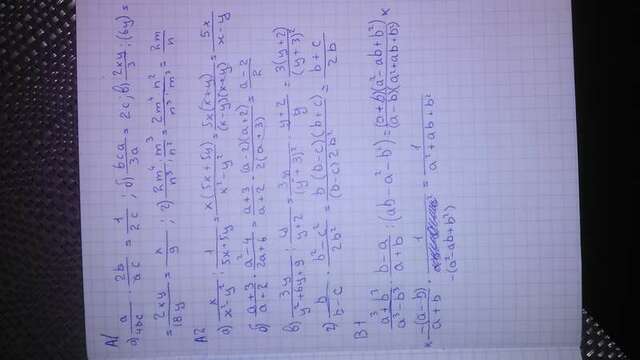 A1
а) a/4bc · 2b/ac = 1/2c ; б) 6ca/3a = 2c, в) 2xy/3 : (6y) =
= 2xy/18y = x/9 ; г) 2m⁴/n⁵ · m³/n² = 2m⁴ n²/n³ · m³ = 2m/n
A2
а) x/x²-y² : 1/5x+5y = x(5x+5y)/x²-y² = 5x(x+y)/(x-y)(x+y) = 5x/x-y
б) a+3/a+2 · a²-4/2a+6 = a+3/a+2 · (a-2)(a+2)/2(a+3) = a-2/2
в) 3y/y²+6y+9 : y/y+2 = 3y/(y+3)² · y+2/y = 3(y+2)/(y+3)²
г) b/b-c · b²-c²/2b² = b(b-c)(b+c)/(b-c)2b² = b+c/2b
B1
a³+b³/a³-b³ · b-a/a+b : (ab-a²-b²) = (a+b)(a²-ab+b²)/(a-b)(a²+ab+b²) ×
× -(a-b)/a+b · 1/-(a²-ab+b²) = 1/a²+ab+b²